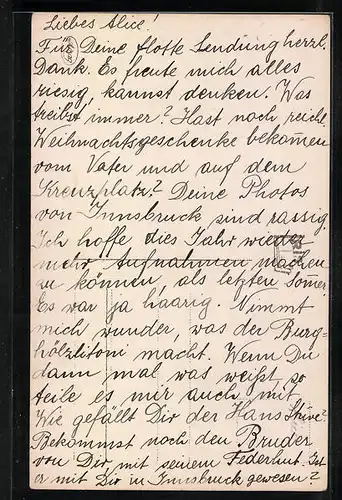 Liebes Alice!
Für Deine flotte Sendung herzl.
Dank. Es freute mich alles
riesig, kannst denken. Was
treibst immer? Hast noch reichl.
Weihnachtsgeschenke bekommen
vom Vater und auf dem
Kreuzplatz? Deine Photos
von Innsbruck sind rassig.
Ich hoffe, dies Jahr wieder
mehr Aufnahmen machen
zu können, als letzten Sommer.
Es war ja haarig. Nimmt
mich wunder, was der Burg-
hölzlitoni macht. Wenn Du
dann mal was weißt, so
teile es mir auch mit.
Wie gefällt Dir der Hans
Bekommst noch den Bruder
von Dir mit seinem Federhut. Ist
er mit Dir in Innsbruck gewesen?